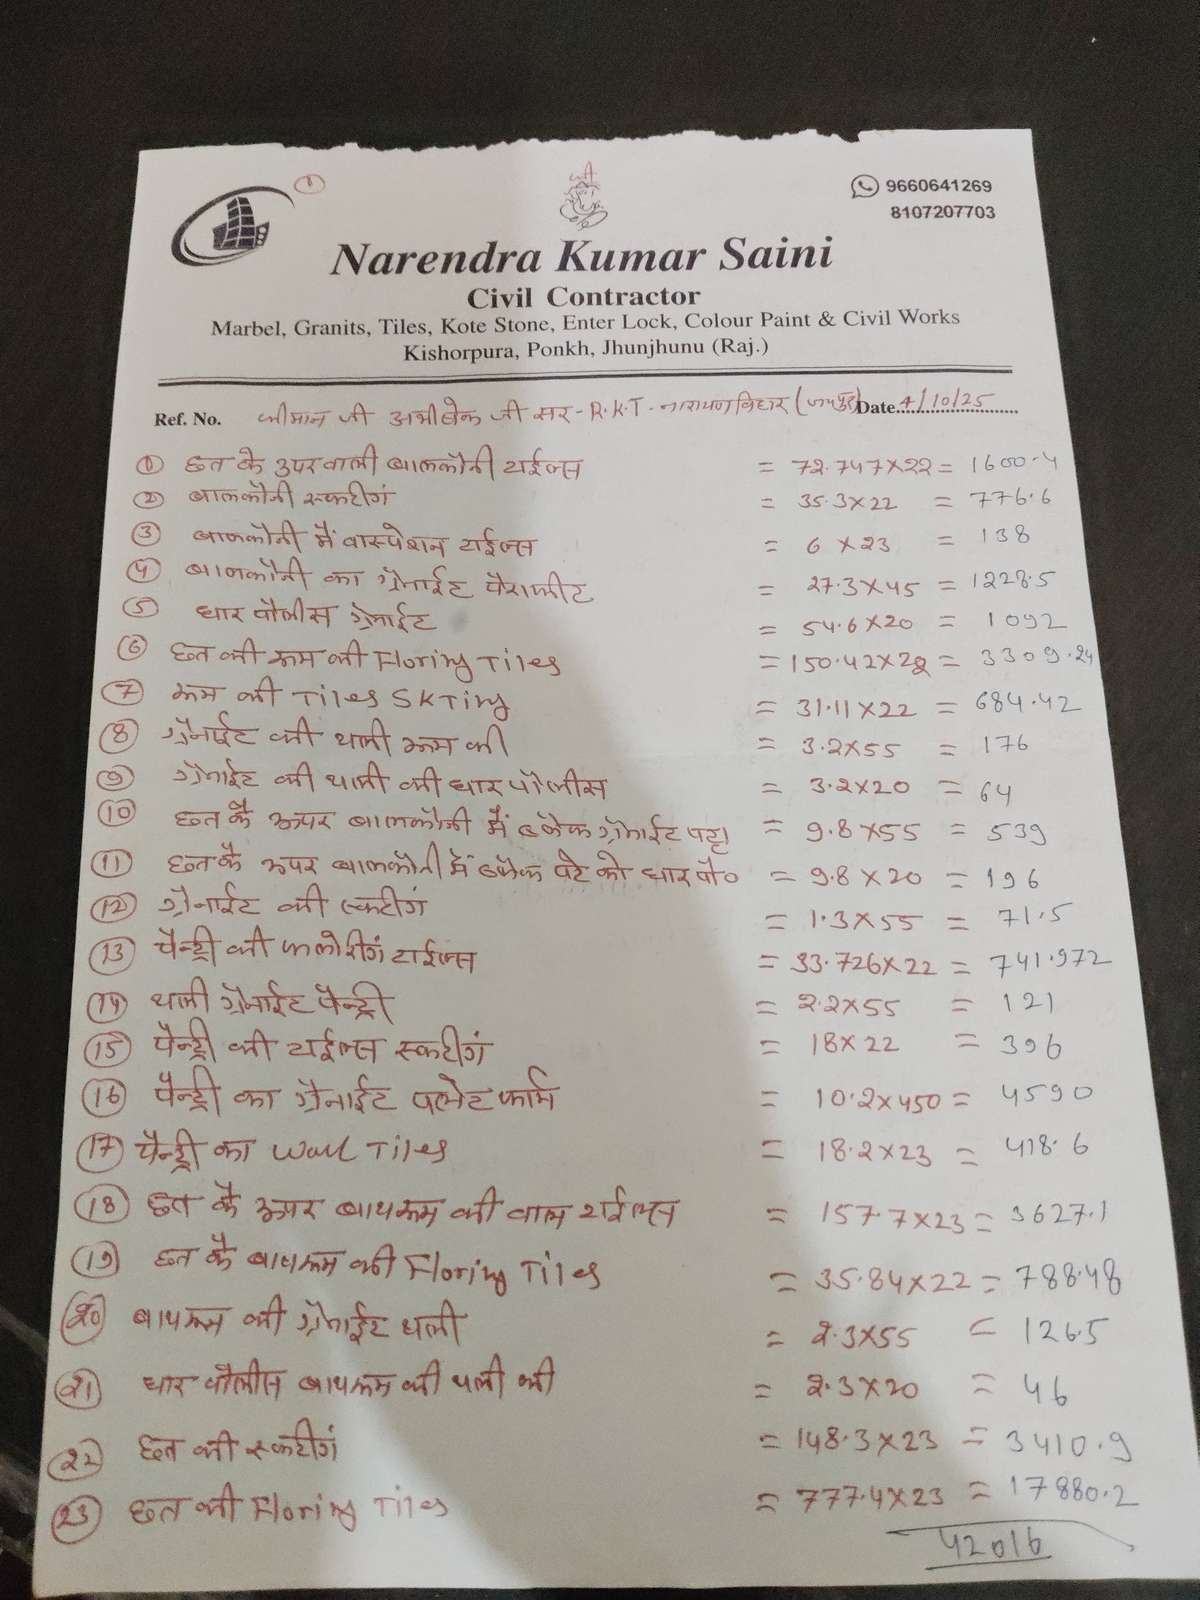 1
9660641269
8107207703
Narendra Kumar Saini
Civil Contractor
Marbel, Granits, Tiles, Kote Stone, Enter Lock, Colour Paint & Civil Works
Kishorpura, Ponkh, Jhunjhunu (Raj.)
Ref. No. श्रीमान जी अभीषेक जी सर - R.K.T - नारायण विहार (जयपुर) Date. 4/10/25
① छत के उपर वाली बालकौनी टाईल्स = 72.747x22 = 1600.4
② बालकौनी स्कटींग = 35.3x22 = 776.6
③ बालकौनी मैं वास्पेशन टाईल्स = 6 x23 = 138
④ बालकौनी का ग्रेनाईट पैराफीट = 27.3x45 = 1228.5
⑤ धार पौलीस ग्रेनाईट = 54.6x20 = 1092
⑥ छत की रूम की Floring Tiles = 150.42x22 = 3309.24
⑦ रूम की Tiles SKTing = 31.11x22 = 684.42
⑧ ग्रेनाईट की थाली रूम की = 3.2x55 = 176
⑨ ग्रेनाईट की थाली की धार पॉलीस = 3.2x20 = 64
⑩ छत कै ऊपर बालकौनी मैं ब्लेक ग्रेनाईट पट्टा = 9.8x55 = 539
⑪ छत कै ऊपर बालकौनी में ब्लेक पटे को धार पौ० = 9.8x20 = 196
⑫ ग्रेनाईट की स्कटींग = 1.3x55 = 71.5
⑬ पैन्ट्री की फ्लोरींग टाईल्स = 33.726x22 = 741.972
⑭ थाली ग्रेनाईट पैन्ट्री = 2.2x55 = 121
⑮ पैन्ट्री की टाईल्स स्कटींग = 18x22 = 396
⑯ पैन्ट्री का ग्रेनाईट पल्मेट फार्म = 10.2x450 = 4590
⑰ पैन्ट्री का Wall Tiles = 18.2x23 = 418.6
⑱ छत कै ऊपर बाथरूम की वाल टाईल्स = 157.7x23 = 3627.1
⑲ छत कै बाथरूम की Floring Tiles = 35.84x22 = 788.48
⑳ बाथरूम की ग्रेनाईट थली = 2.3x55 = 126.5
㉑ धार पौलीस बाथरूम की थली की = 2.3x20 = 46
㉒ छत की स्कटींग = 148.3x23 = 3410.9
㉓ छत की Floring Tiles = 777.4x23 = 17880.2
42016